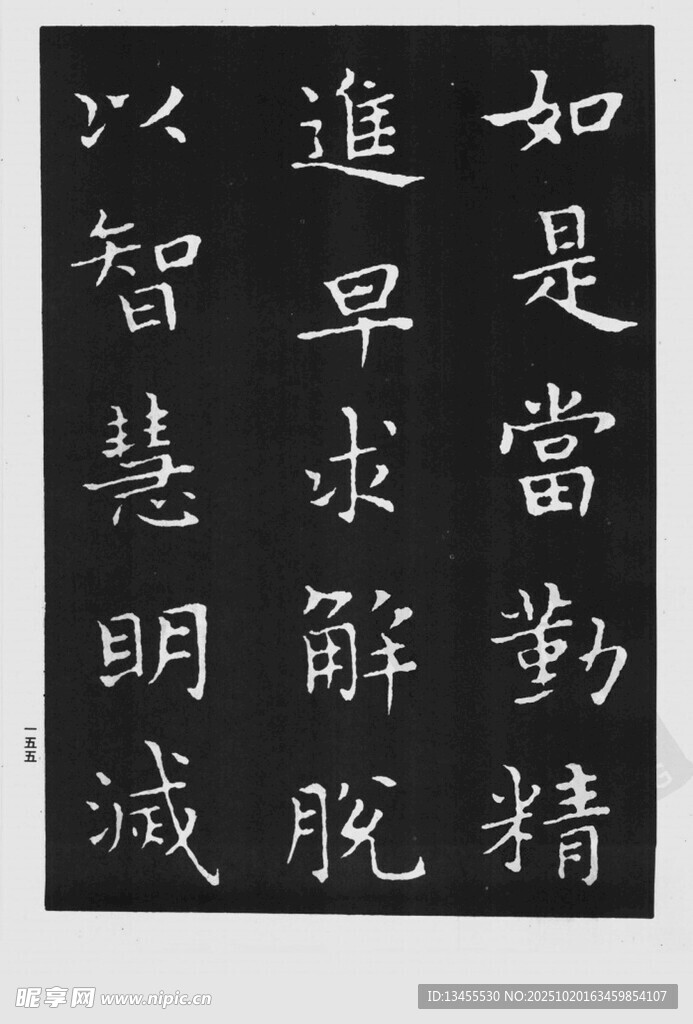 如是當勤精
進早求解脫
以智慧明滅
一五五
昵享网 www.nipic.cn
ID:13455530 NO:20251020163459854107